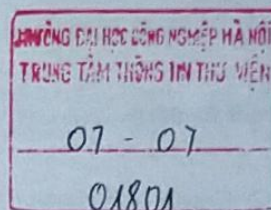 TRƯỜNG ĐẠI HỌC CÔNG NGHIỆP HÀ NỘI
TRUNG TÂM THÔNG TIN THƯ VIỆN
07 - 07
01801